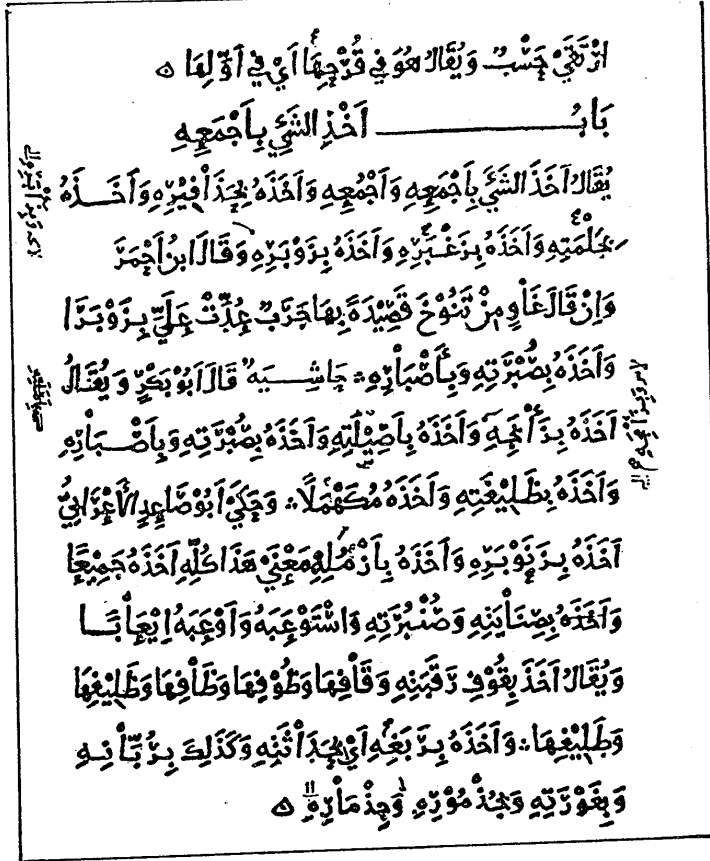 ارْتَقَىٰ حَسْبُ وَيُقَالُ هُوَ فِي قُرْحِهَا أَيْ فِي أَوَّلِهَا ه
بَابُ أَخْذِ الشَّيْءِ بِأَجْمَعِهِ
يُقَالُ أَخَذَ الشَّيْءَ بِأَجْمَعِهِ وَأَجْمُعِهِ وَأَخَذَهُ بِحَذَافِيْرِهِ وَأَخَذَهُ
بِجَلْمَتِهِ وَأَخَذَهُ بِزَغْبَرِهِ وَأَخَذَهُ بِزَوْبَرِهِ وَقَالَ ابنُ أَحْمَرَ
وَإِنْ قَالَ غَاوٍ مِنْ تَنُوْخَ قَصِيْدَةً بِهَا جَرَبٌ عُدَّتْ عَلَيَّ بِزَوْبَرَا
وَأَخَذَهُ بِصُبْرَتِهِ وَبِأَصْبَارِهِ حَاشِيَه قَالَ أَبُو بَكْرٍ وَيُقَالُ
أَخَذَهُ بِزَأْبَجِهِ وَأَخَذَهُ بِأَصِيْلَتِهِ وَأَخَذَهُ بِصُبْرَتِهِ وَبِأَصْبَارِهِ
وَأَخَذَهُ بِظَلِيْفَتِهِ وَأَخَذَهُ مُكَهْمَلًا وَحَكَىٰ أَبُو صَاعِدٍ الْأَعْرَابِيُّ
أَخَذَهُ بِزَنَوْبَرِهِ وَأَخَذَهُ بِأَزْمُلِهِ مَعْنَىٰ هَذَا كُلِّهِ أَخَذَهُ جَمِيْعًا
وَأَخَذَهُ بِصِنَايَتِهِ وَصُنْبُرَتِهِ وَاسْتَوْعَبَهُ وَأَوْعَبَهُ إِيْعَابًا
وَيُقَالُ أَخَذَ بِقُوْفِ رَقَبَتِهِ وَقَافِهَا وَظُوْفِهَا وَظَافِهَا وَظَلِيْفِهَا
وَظَلِيْفِهَا وَأَخَذَهُ بِرَبَغِهِ أَيْ بِحَدَاثَتِهِ وَكَذَلِكَ بِرُبَّانِهِ
وَبِغَوْرَتِهِ وَبِحُذْمُوْرِهِ وَحِذْمَارِهِ ه